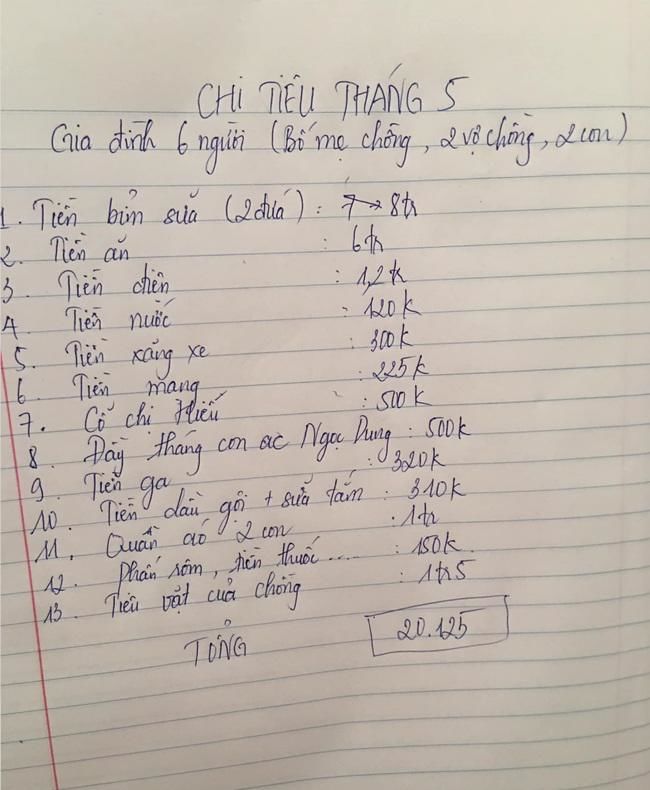 CHI TIÊU THÁNG 5
Gia đình 6 người (Bố mẹ chồng, 2 vợ chồng, 2 con)
1. Tiền bỉm sữa (2 đứa) : 7 → 8tr
2. Tiền ăn : 6tr
3. Tiền điện : 1,2tr
4. Tiền nước : 120k
5. Tiền xăng xe : 300k
6. Tiền mạng : 225k
7. Cỗ chị Hiếu : 500k
8. Đầy tháng con ac Ngọc Dung : 500k
9. Tiền ga : 320k
10. Tiền dầu gội + sữa tắm : 310k
11. Quần áo 2 con : 1tr
12. Phấn rôm, tiền thuốc.... : 150k
13. Tiêu vặt của chồng : 1tr5
TỔNG 20.125